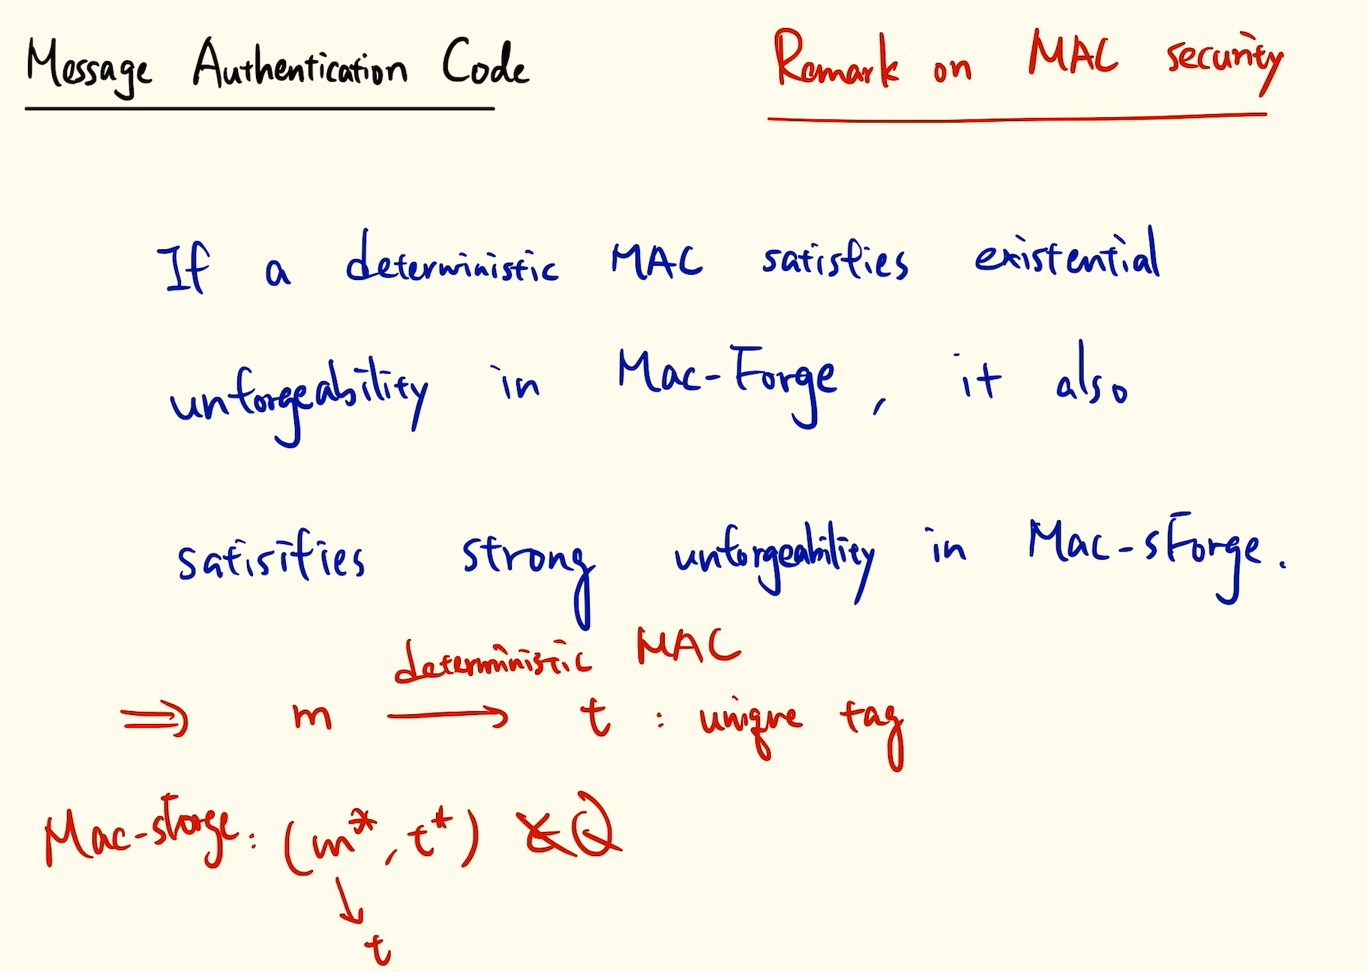 Message Authentication Code
Remark on MAC security
If a deterministic MAC satisfies existential
unforgeability in Mac-Forge, it also
satisifies strong unforgeability in Mac-sForge.
deterministic MAC
⇒ m → t : unique tag
Mac-sForge: (m*, t*) ∉ Q
↓
t